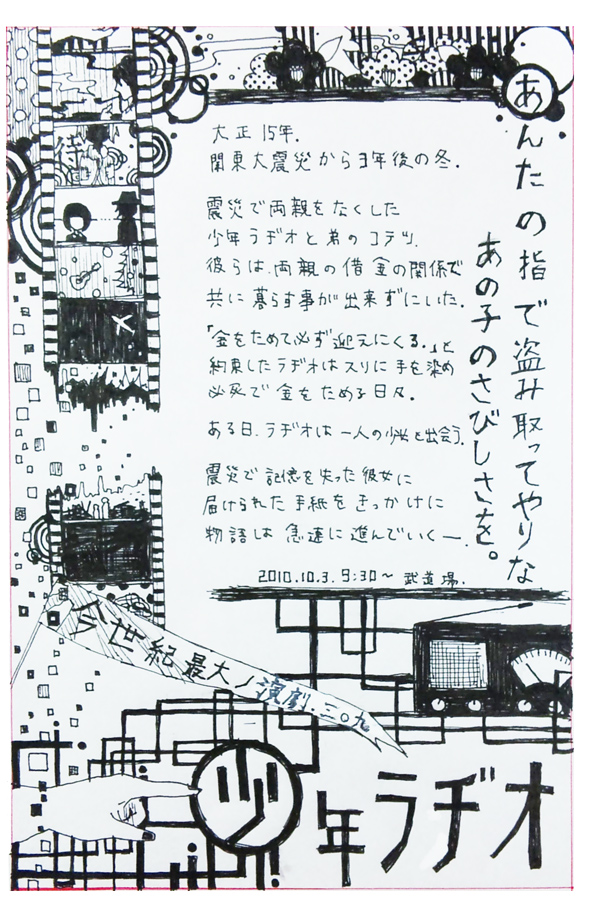 あんたの指で盗み取ってやりな
あの子のさびしさを。
大正15年.
関東大震災から3年後の冬.
震災で両親をなくした
少年ラヂオと弟のコテツ.
彼らは、両親の借金の関係で
共に暮らす事が出来ずにいた.
「金をためて必ず迎えにくる.」と
約束したラヂオはスリに手を染め
必死で金をためる日々.
ある日、ラヂオは一人の少女と出会う.
震災で記憶を失った彼女に
届けられた手紙をきっかけに
物語は急速に進んでいく―.
2010.10.3. 9:30~ 武道場.
待
今世紀最大ノ演劇.三〇九
少年ラヂオ